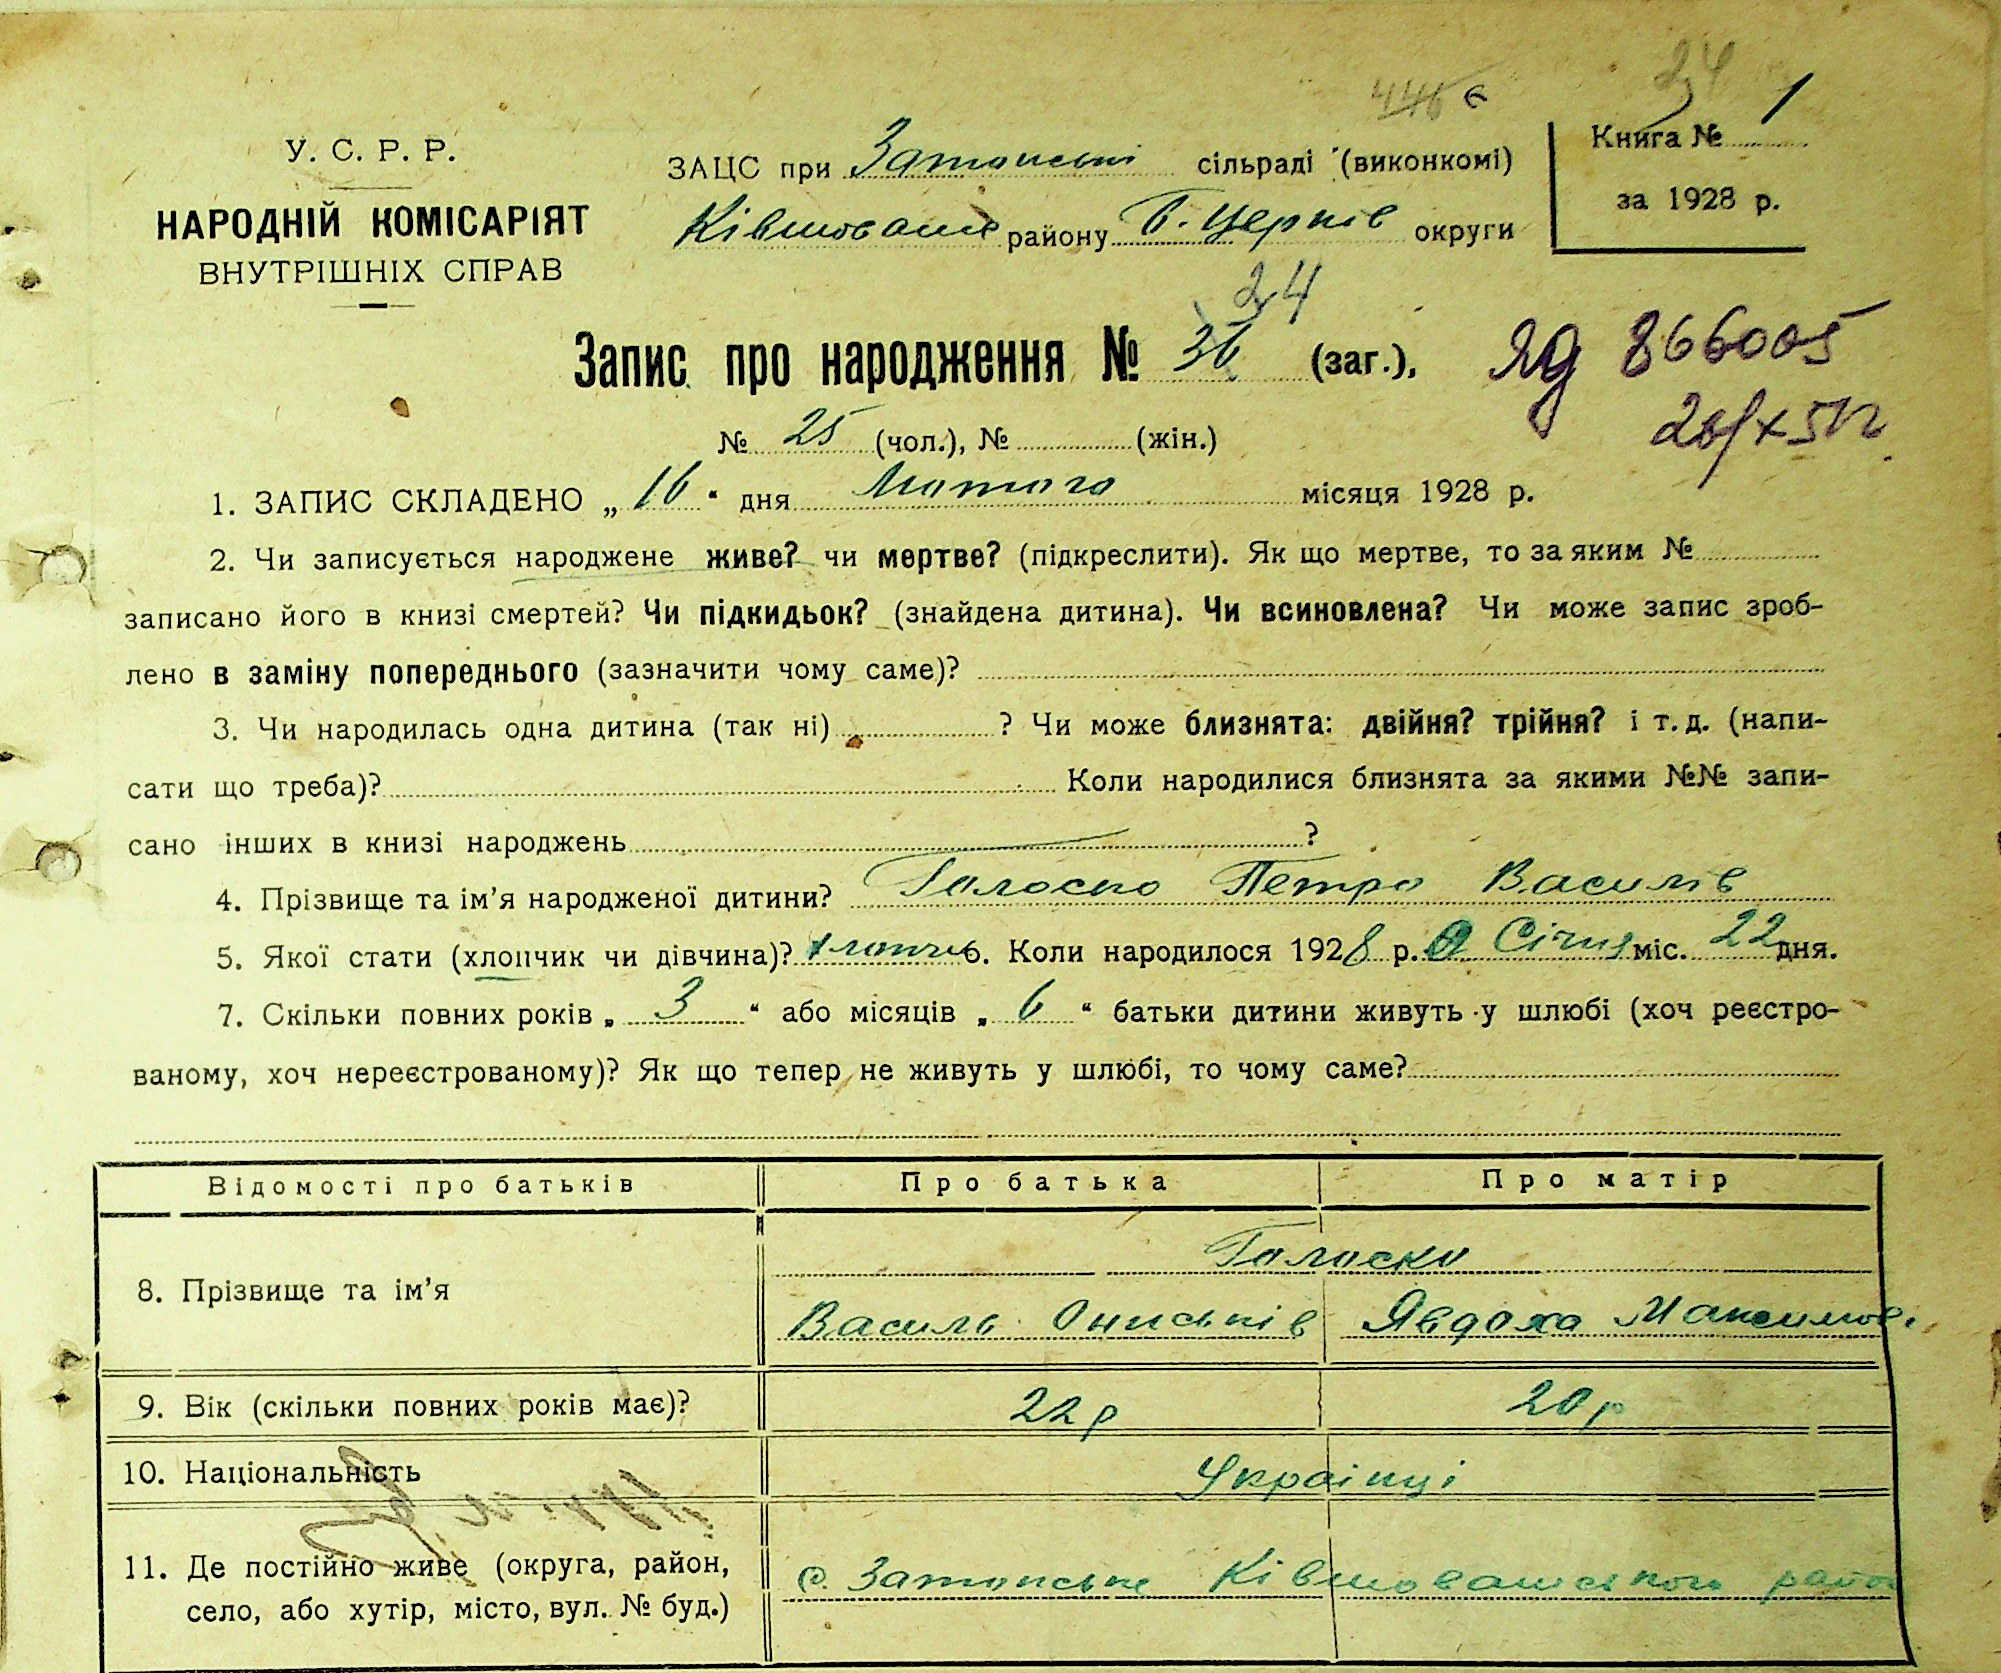 24
446 є
У. С. Р. Р.
НАРОДНІЙ КОМІСАРІЯТ
ВНУТРІШНІХ СПРАВ
ЗАЦС при Затонські сільраді (виконкомі)
Ківшоваше району Б. Церків округи
Книга № 1
за 1928 р.
24
Запис про народження № 36 (заг.),
№ 25 (чол.), № (жін.)
ЯД 866005
1. ЗАПИС СКЛАДЕНО „ 16 “ дня Лютого місяця 1928 р.
2. Чи записується народжене живе? чи мертве? (підкреслити). Як що мертве, то за яким №
записано його в книзі смертей? Чи підкидьок? (знайдена дитина). Чи всиновлена? Чи може запис зроб-
лено в заміну попереднього (зазначити чому саме)?
3. Чи народилась одна дитина (так ні) ? Чи може близнята: двійня? трійня? і т. д. (напи-
сати що треба)? Коли народилися близнята за якими №№ запи-
сано інших в книзі народжень ?
4. Прізвище та ім’я народженої дитини? Галоско Петро Василів
5. Якої стати (хлопчик чи дівчина)? хлопчик 6. Коли народилося 1928 р. Січня міс. 22 дня.
7. Скільки повних років „ 3 “ або місяців „ 6 “ батьки дитини живуть у шлюбі (хоч реєстро-
ваному, хоч нереєстрованому)? Як що тепер не живуть у шлюбі, то чому саме?
Відомості про батьків Про батька Про матір
8. Прізвище та ім’я Галоско
ВасильОниськів Явдоха Максимові
9. Вік (скільки повних років має)? 22 р 20 р
10. Національність Українці
11. Де постійно живе (округа, район,
село, або хутір, місто, вул. № буд.)
с. Затонське Ківшовашського район